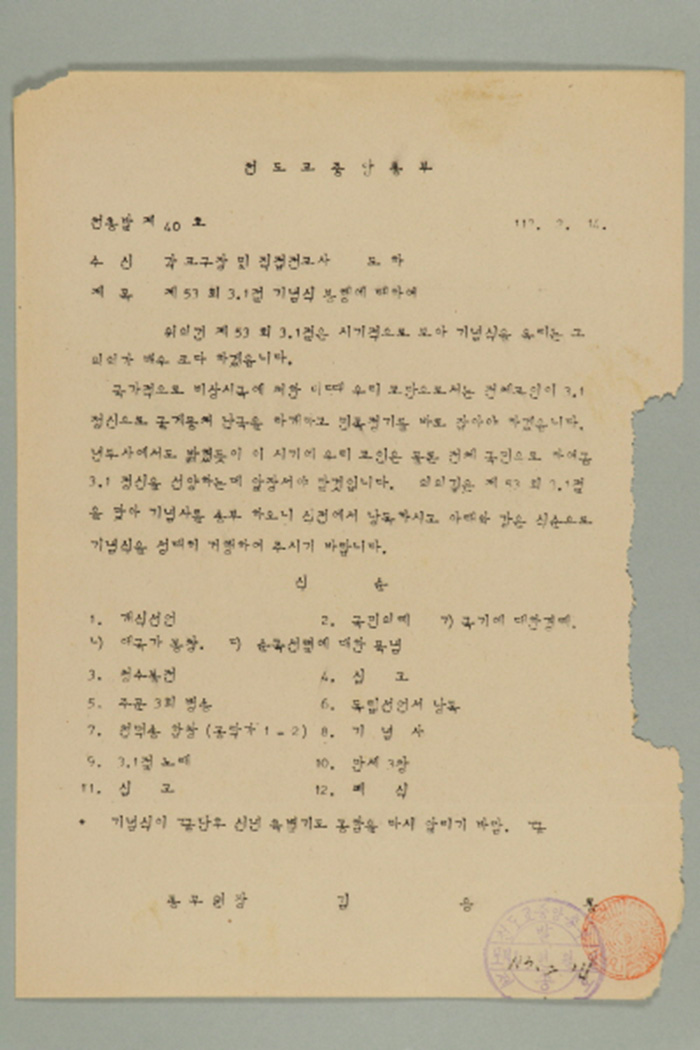 천 도 교 중 앙 총 부
천총발 제 40 호 113. 2. 14.
수 신 각 교구장 및 직접전교사 도 하
제 목 제 53 회 3.1절 기념식 봉행에 대하여
위의건 제 53 회 3.1절은 시기적으로 보아 기념식을 올리는 그
의의가 매우 크다 하겠읍니다.
국가적으로 비상시국에 처한 이때 우리 교단으로서는 전체교인이 3.1
정신으로 굳게뭉쳐 난국을 타개하고 민족정기를 바로 잡아야 하겠읍니다.
년두사에서도 밝혔듯이 이 시기에 우리 교인은 물론 전체 국민으로 하여금
3.1 정신을 선양하는데 앞장서야 할것입니다. 의의깊은 제 53 회 3.1절
을 맞아 기념사를 송부 하오니 식전에서 낭독하시고 아래와 같은 식순으로
기념식을 성대히 거행하여 주시기 바랍니다.
식 순
1. 개식선언 2. 국민의례 ㄱ) 국기에 대한경례.
ㄴ) 애국가 봉창. ㄷ) 순국선열에 대한 묵념
3. 청수봉전 4. 심 고
5. 주문 3회 병송 6. 독립선언서 낭독
7. 천덕송 합창 (공락가 1 - 2) 8. 기 념 사
9. 3.1절 노래 10. 만세 3창
11. 심 고 12. 폐 식
* 기념식이 끝난후 신년 특별기도 봉행을 다시 알리기 바람. 끝
종무원장 김